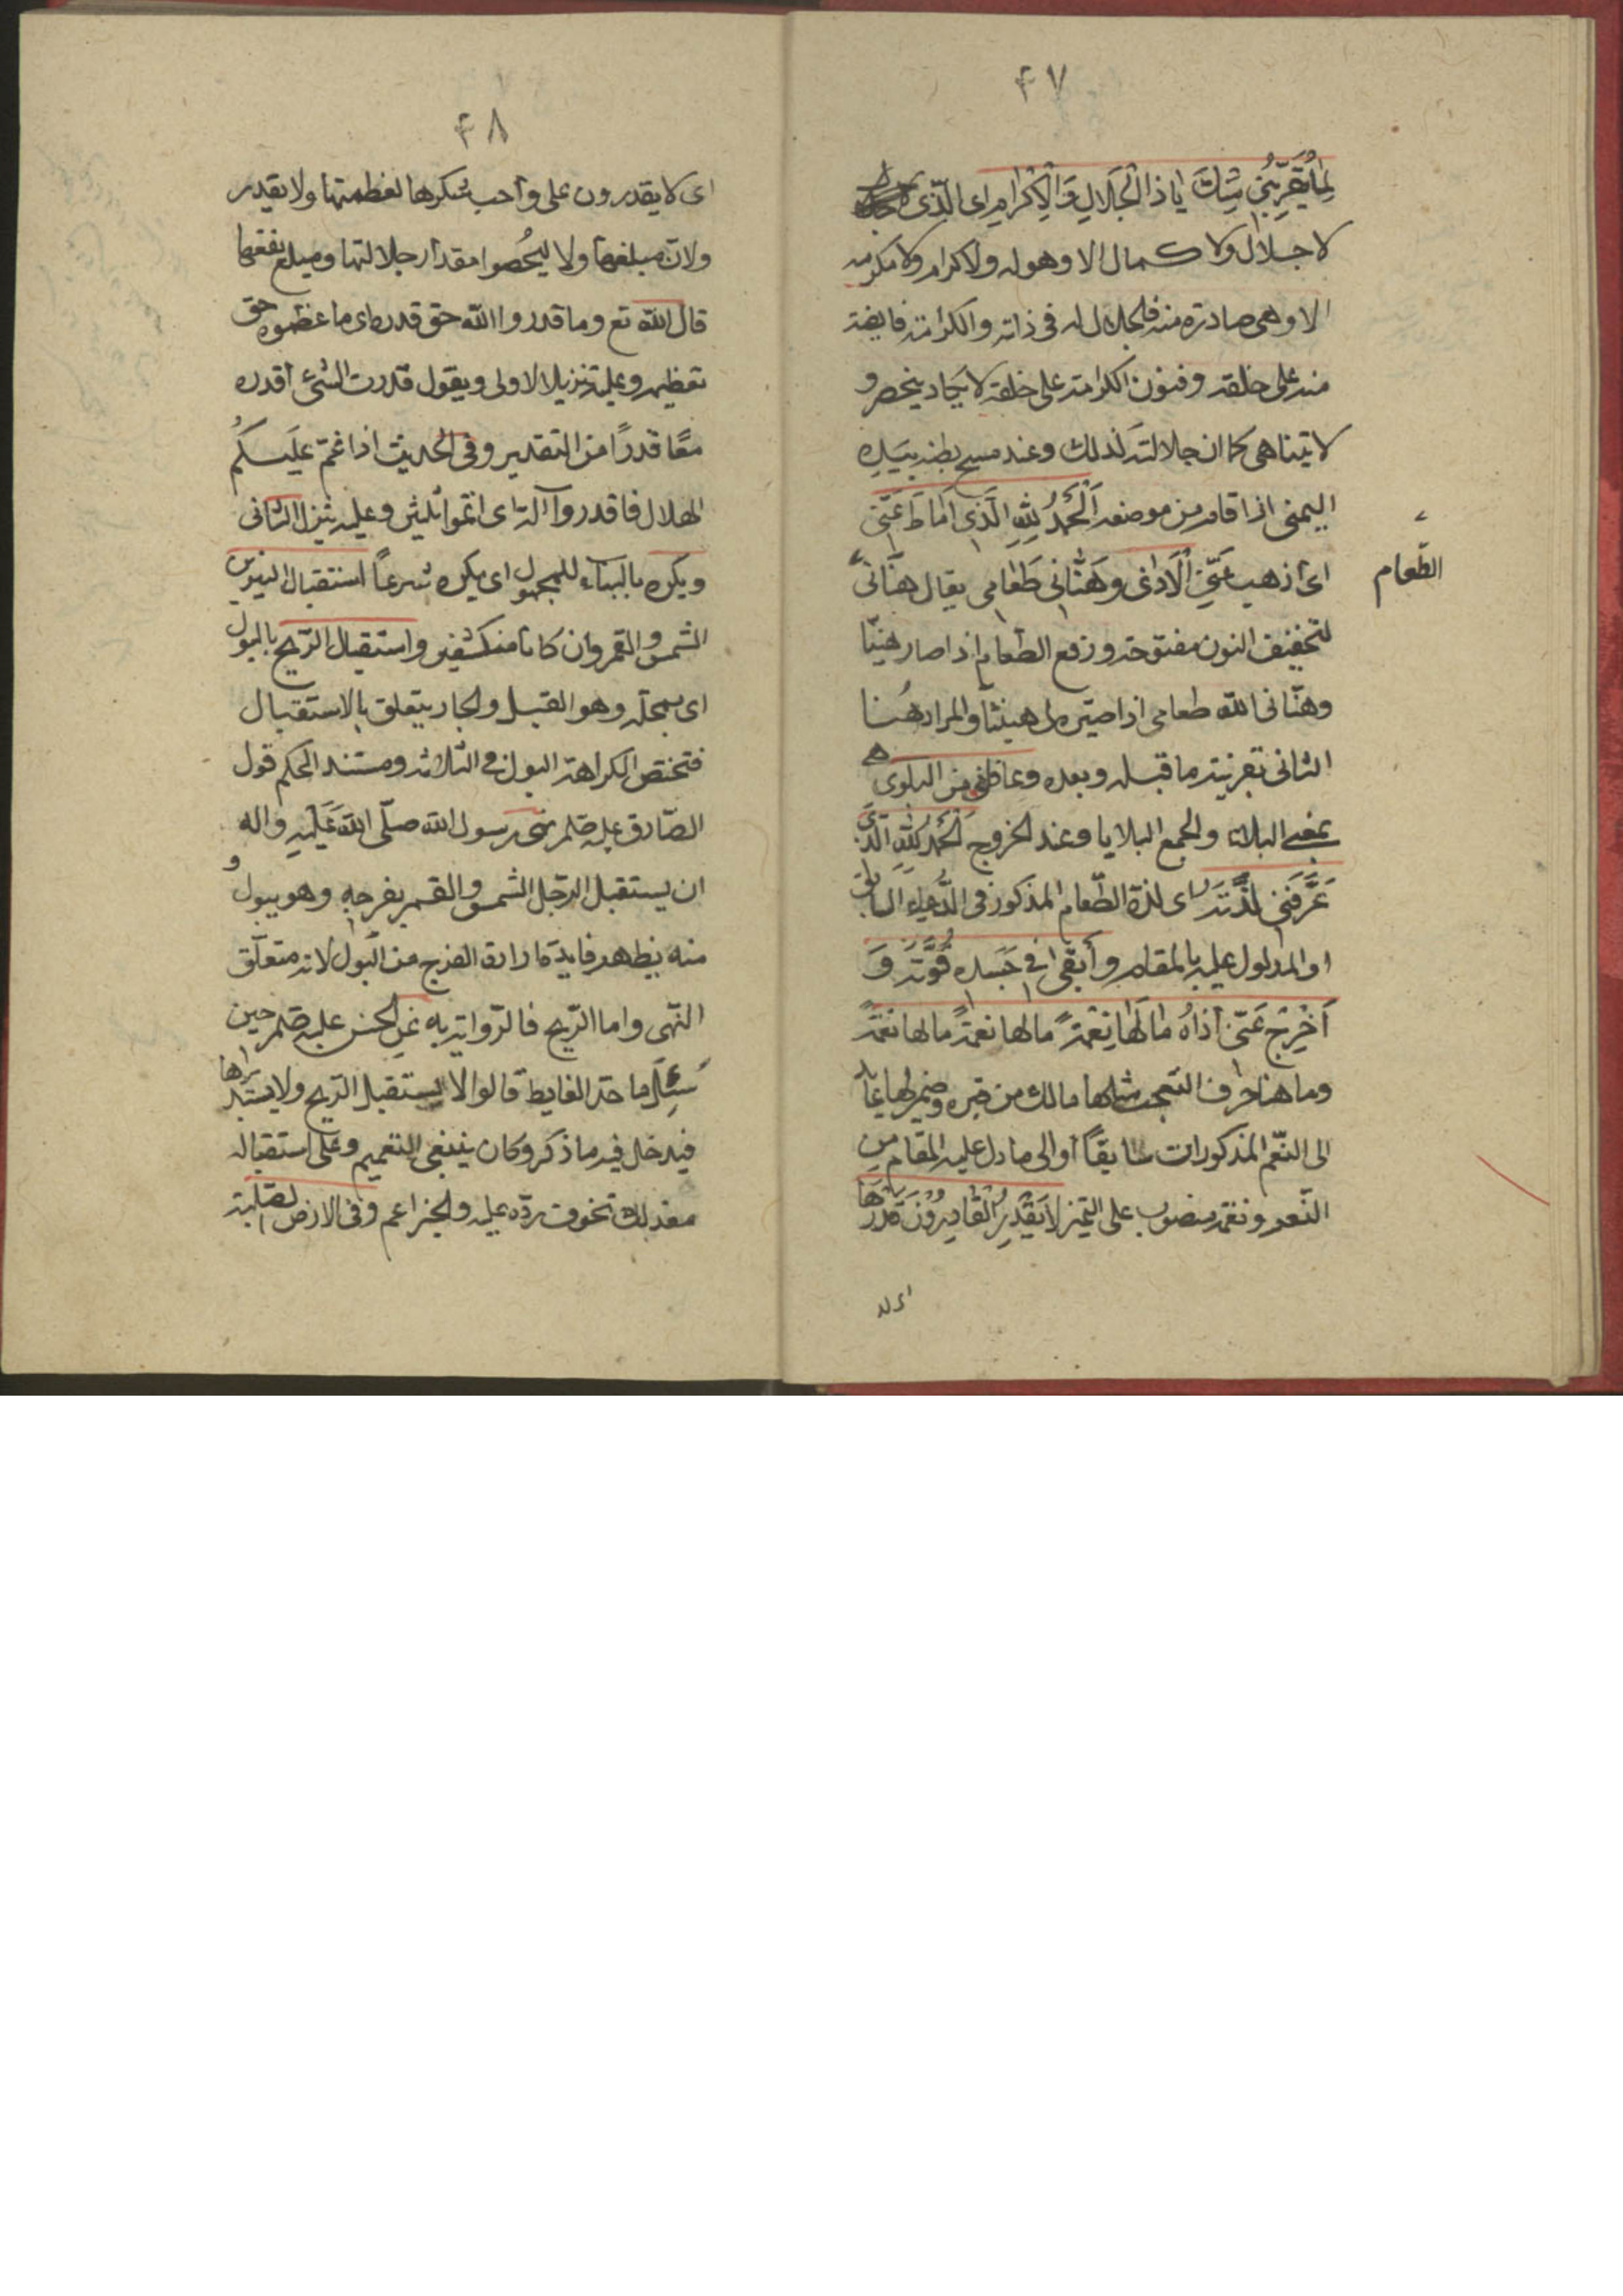 ۴۷
لِمٰا يُقَرِّبُنِي مِنْكَ يٰا ذَا الْجَلٰالِ وَالْاِكْرٰامِ اى الّذى
لا جلال ولا كمال الا وهو له ولا كرام ولا مكرمه
الا وهى صادرة منه فالجلال له فى ذاته والكرامة فايضة
منه على خلقه وفنون الكرامته على خلقه لا يكاد ينحصر و
لا يتناهى كما ان جلالته كذلك وعند مسح بطنه بيده
اليمنى اذا قام من موضعه اَلْحَمْدُ لِلّٰهِ الَّذى اَمٰاطَ عَنّى
اى اذهب عَنِّى الْاَذٰى وَهَنّأنى طَعٰامى يقال هنّأنى
الطّعام
لتخفيف النون مفتوحة ورفع الطعام اذا صار هنيّا
وهنّأنى الله طعامى اذا صيّره لى هنيئا والمراد هُنا
الثانى بقرينة ما قبله وبعده وعافانى من البلوى
بمعنى البلاء والجمع البلايا وعند الخروج اَلْحَمْدُ لِلّٰهِ الّذى
عَرَّفَنى لَذَّتَهُ اى لذة الطّعام المذكور فى الدّعاء السابق
او المدلول عليه بالمقام وأَبقى فى جَسَدى قُوَّتَهُ وَ
اَخْرَجَ عَنّى اَذٰاهُ مٰا لَهٰا نِعْمَةً مالها نعمةً مالها نعمةً
وما هنا حرف التعجب مالك من وضمير لها عايد
الى النّعم المذكورات سابقًا أو الى ما دل عليه المقام من
النّعم ونعمة منصوب على التميز لاٰ يَقْدِرُ الْقٰادِرُونَ قَدْرَهٰا
اى لا
۴۸
اى لا يقدرون على واجب شكرها لعظمتها ولا يقدر
ولان مبلغها ولا ليُحصوا مقدار جلالتها ومبلغ نفعها
قال الله تع وما قدروا الله حق قدره اى ما عظموه حق
تعظيمه وعليه تنزيل الاولى ويقول قدرت الشئ اقدره
معًا قدرًا من التقدير وفى الحديث اذا غمّ عليكُم
الهلال فاقدروا له اى اتمّوا ثلثين وعليه تنزل الثانى
ويكره بالبناء للمجهول اى يكره شرعاً استقبال النيرين
الشمس والقمر وان كانا منكسفين واستقبال الرّيح بالبول
اى بمحلّه وهو القبل والجار يتعلق بالاستقبال
فتختص الكراهة البول فى الثلاثه ومستند الحكم قول
الصّادق عليه صلم نهى رسول الله صلّى الله عَلَيْهِ واله
ان يستقبل الرّجل الشمس والقمر بفرجه وهو يبول و
منه يظهر فايدة ارادة الفرج من البول لانه متعلّق
النّهى واما الرّيح فالرّواية به عن الحسن عليه صلم حين
سُئِلَ ما حدّ الغايط قالوا لا يستقبل الرّيح ولا يستدبرها
فيدخل فيه ما ذكر وكان ينبغى التعميم وعلى استقباله
معذلك تخوف ردّه عليه والخبر اعم وفى الارض الصّلبة